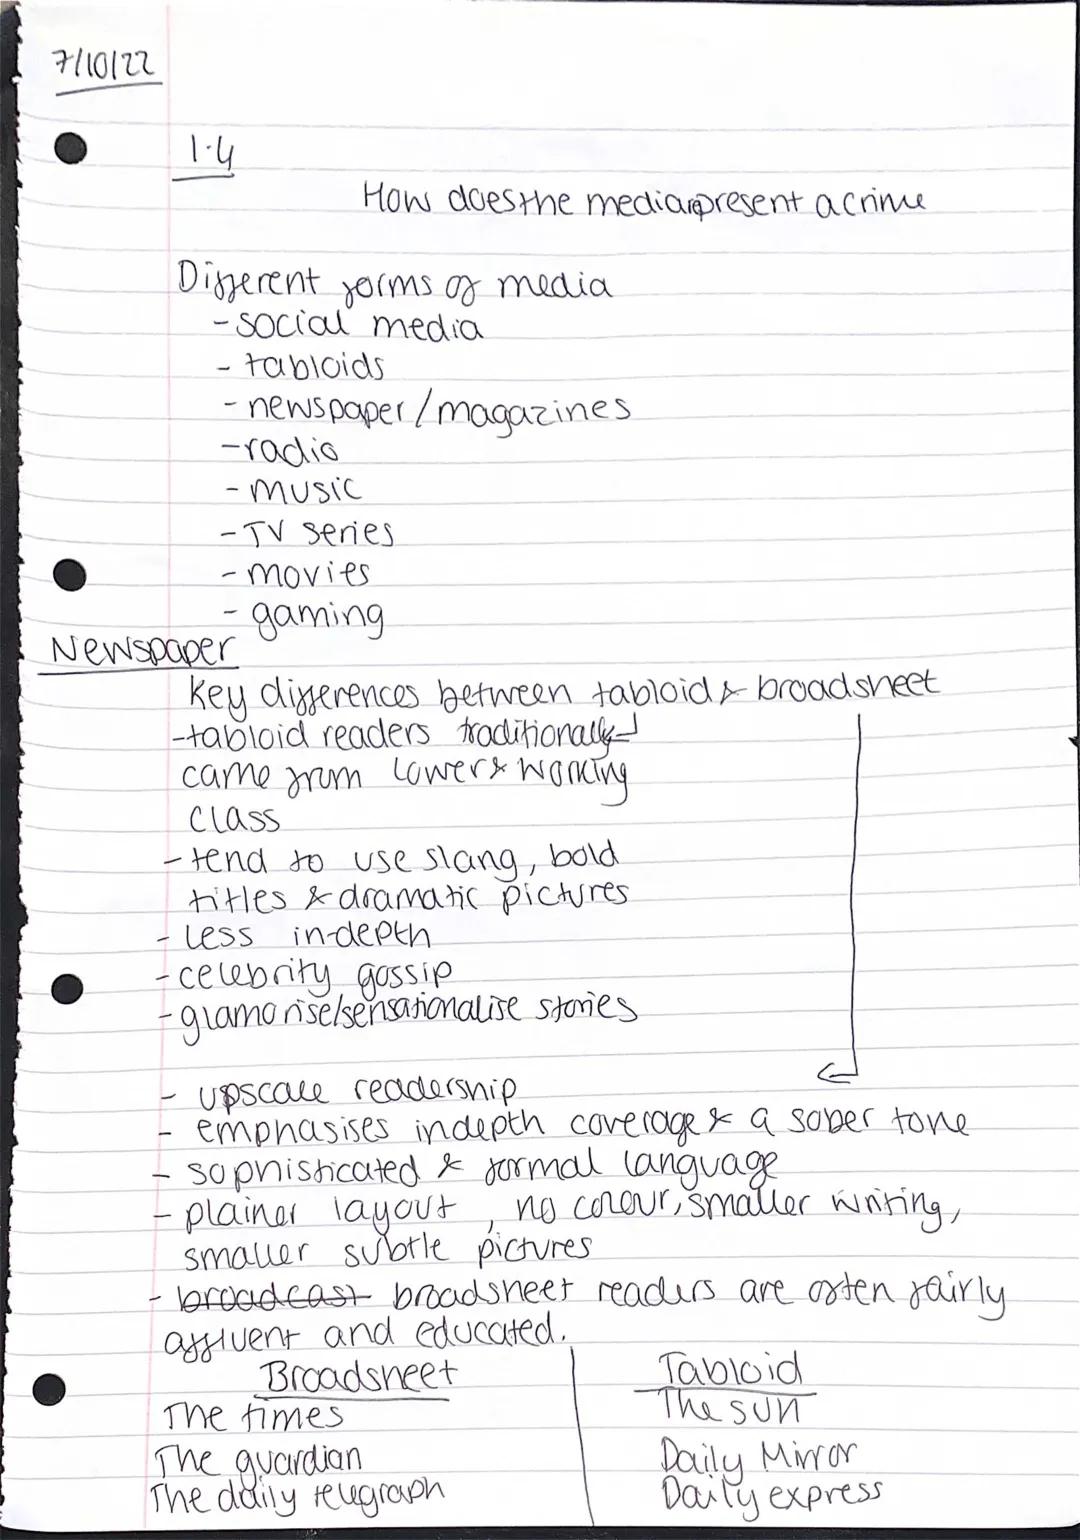 7/10/22
1.4
How does the media represent a crime
Different forms of media
- social media
- tabloids
- newspaper/magazines
- radio
- music
- TV series
- movies
- gaming
Newspaper
key differences between tabloid & broadsheet
- tabloid readers traditionally
came from lower & working
class
- tend to use slang, bold
titles & dramatic pictures
- less in-depth
- celebrity gossip
- glamorise/sensationalise stories
- upscale readership
- emphasises indepth coverage & a sober tone
- sophisticated & formal language
- plainer layout, no colour, smaller writing,
smaller subtle pictures
- broadcast broadsheet readers are often fairly
affluent and educated.
Broadsheet
The times
The guardian
The daily telegraph
Tabloid
The sun
Daily Mirror
Daily express